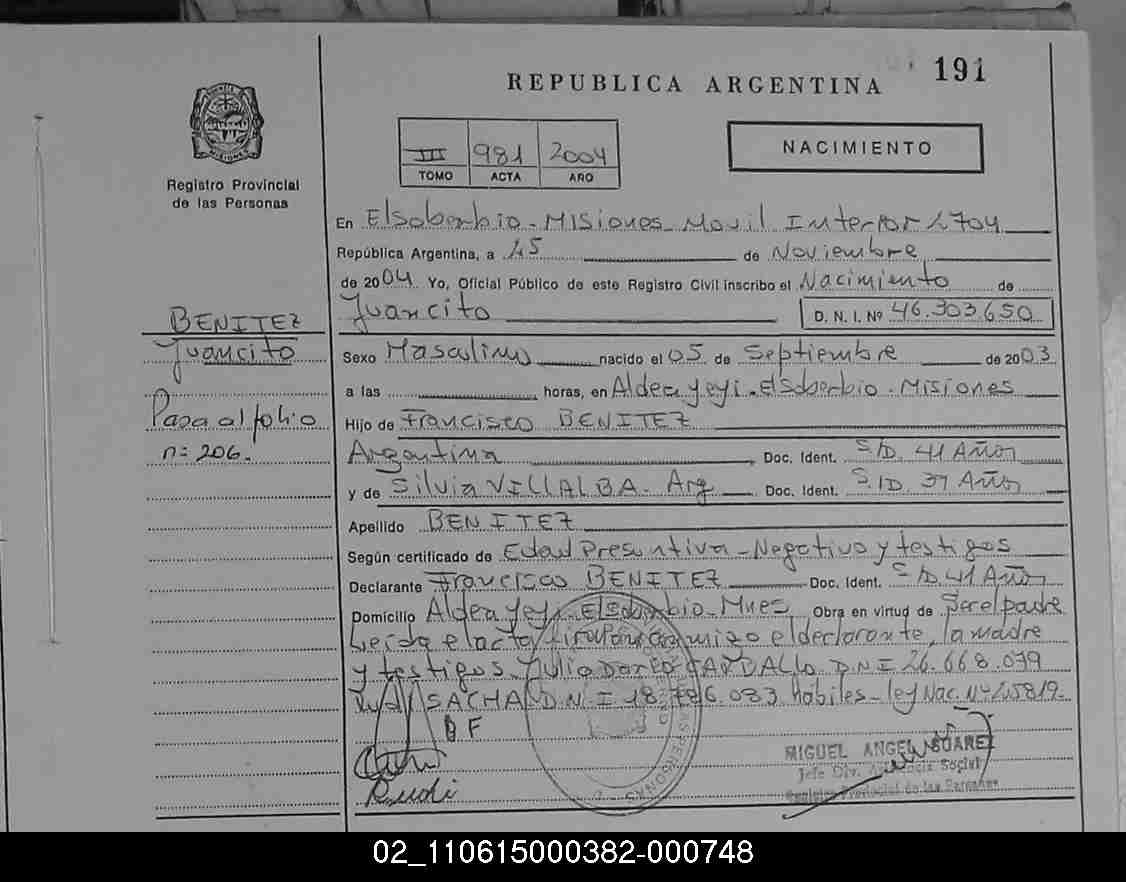 191
REPUBLICA ARGENTINA
III 981 2004
TOMO ACTA AÑO
NACIMIENTO
MISIONES
Registro Provincial
de las Personas
En Elsoberbio - Misiones - Movil Interior 2704
República Argentina, a 25 de Noviembre
de 2004 Yo, Oficial Público de este Registro Civil inscribo el Nacimiento de
Juancito D. N. I. Nº 46.303.650
BENITEZ
Juancito
Pasa al folio
n= 206.
Sexo Masculino nacido el 05 de Septiembre de 2003
a las horas, en Aldea yeyi - Elsoberbio - Misiones
Hijo de Francisco BENITEZ
Argentina Doc. Ident. S/D. 41 Años
y de Silvia VILLALBA - Arg Doc. Ident. S/D. 37 Años
Apellido BENITEZ
Según certificado de Edad Presuntiva - Negativo y testigos
Declarante Francisco BENITEZ Doc. Ident. S/D. 41 Años
Domicilio Aldea yeyi - Elsoberbio - Mnes Obra en virtud de Ser el padre
Leida el acta firman conmigo el declarante, la madre
y testigos Julio D.N.I 26.668.079
SACHA D.N.I 18.786.083 hábiles - ley Nac. Nº 25819-
B F
Rudi
MIGUEL ANGEL SUAREZ
Jefe Div. Social
Registro Provincial de las Personas
02_110615000382-000748